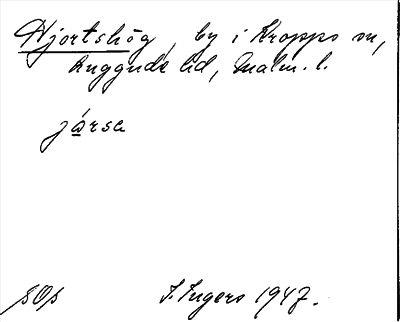 Hjortshög, by i Kropps sn,
Luggude hd, Malm. l.
järsa
sOs I. Ingers 1947.